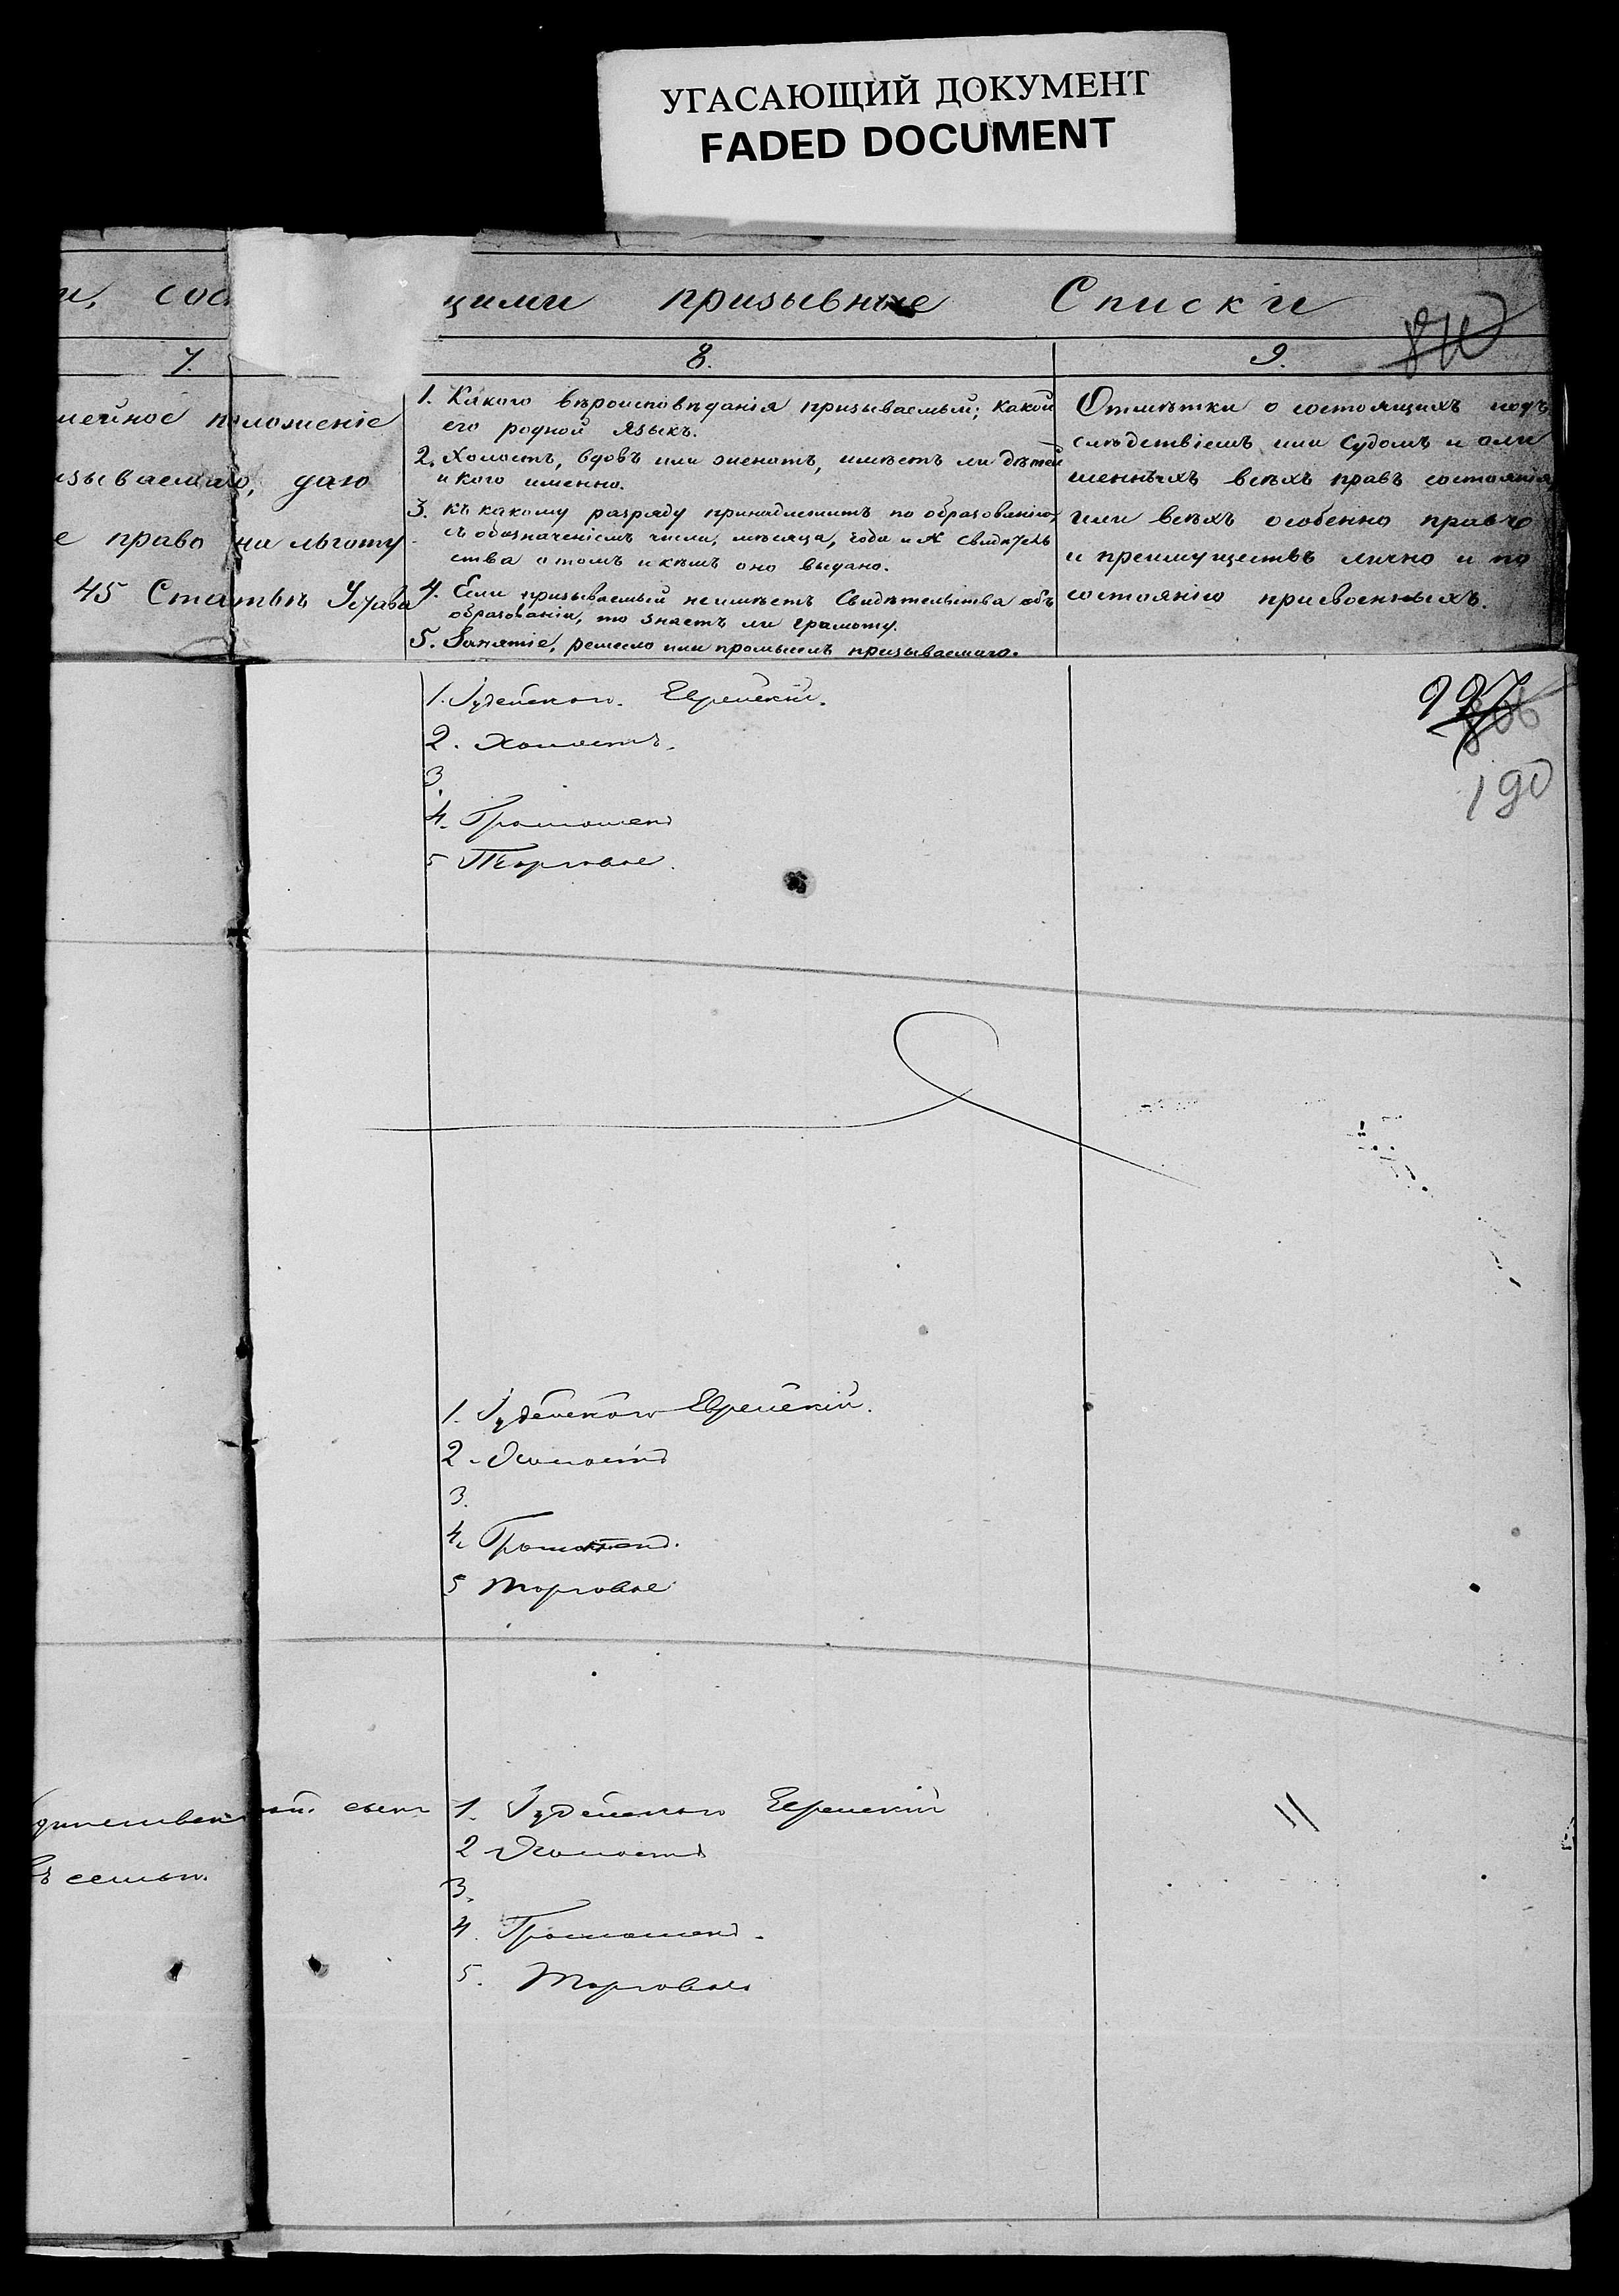 УГАСАЮЩИЙ ДОКУМЕНТ
FADED DOCUMENT
щими призывные Списки
7. 8. 9.
мейное положеніе
зываемаго, даю
е право на льготу
45 Статьѣ Устава
1. Какого вѣроисповѣданія призываемый; какой
его родной языкъ.
2. Холостъ, вдовъ или женатъ, имѣетъ ли дѣтей
и кого именно.
3. Къ какому разряду принадлежитъ по образованію,
съ обозначеніемъ числа, мѣсяца, года и № свидѣтель
ства о томъ и кѣмъ оно выдано.
4. Если призываемый неимѣетъ Свидѣтельства объ
образованіи, то знаетъ ли грамоту.
5. Занятіе, ремесло или промыселъ призываемаго.
Отмѣтки о состоящихъ подъ
слѣдствіемъ или Судомъ и ли
шенныхъ всѣхъ правъ состоянія
или всѣхъ особенно правъ
и преимуществъ лично и по
состоянію присвоенныхъ.
190
1. Іудейскаго. Еврейскій.
2. Холостъ.
3.
4. Грамотенъ
5 Торговлею.
1. Іудейскаго Еврейскій.
2. Холостъ
3.
4. Грамотенъ.
5 Торговлею
динственный сынъ
въ семьи.
1. Іудейскаго Еврейскій
2 Холостъ
3.
4. Грамотенъ.
5. Торговлею